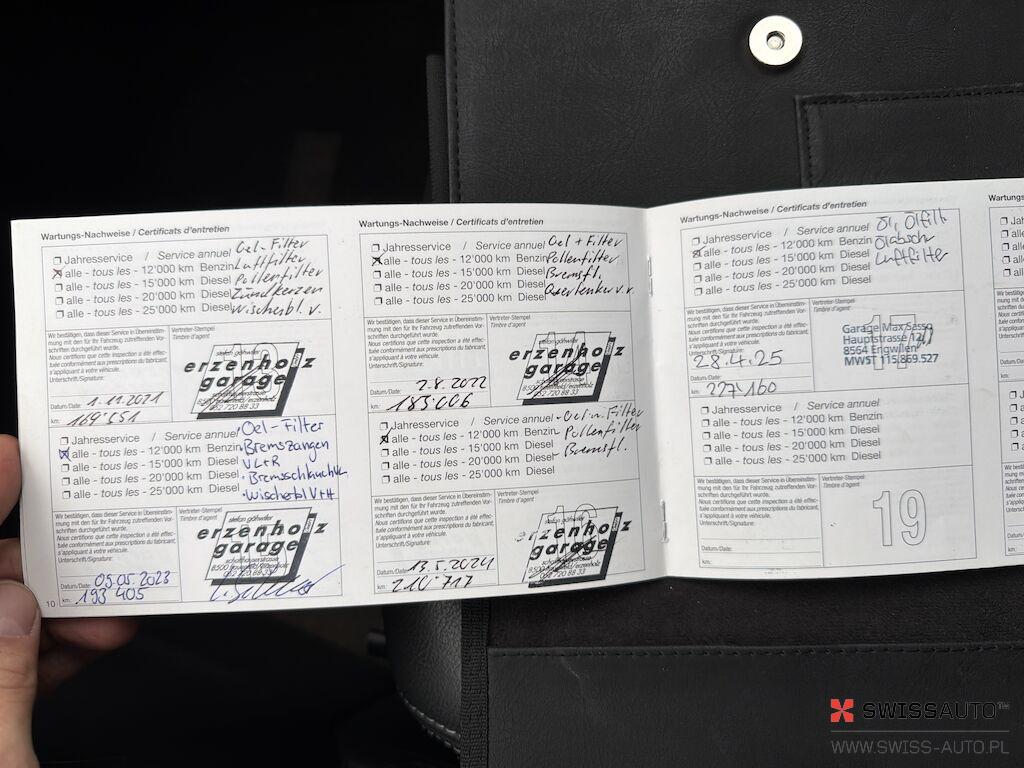 Wartungs-Nachweise / Certificats d'entretien
Jahresservice / Service annuel
alle - tous les - 12'000 km Benzin
alle - tous les - 15'000 km Diesel
alle - tous les - 20'000 km Diesel
alle - tous les - 25'000 km Diesel
Oel-Filter
Luftfilter
Pollenfilter
Zündkerzen
Wischerbl. v.
Wir bestätigen, dass dieser Service in Übereinstim-
mung mit den für Ihr Fahrzeug zutreffenden Vor-
schriften durchgeführt wurde.
Nous certifions que cette inspection a été effec-
tuée conformément aux prescriptions du fabricant,
s'appliquant à votre véhicule.
Unterschrift/Signature:
Vertreter-Stempel
Timbre d'agent
stefan gähwiler
erzenholz
garage
052 720 88 33
Datum/Date: 1.11.2021
km: 169'551
Jahresservice / Service annuel
alle - tous les - 12'000 km Benzin
alle - tous les - 15'000 km Diesel
alle - tous les - 20'000 km Diesel
alle - tous les - 25'000 km Diesel
Oel-Filter
Bremszangen
V L+R
Wischerbl V+H
Wir bestätigen, dass dieser Service in Übereinstim-
mung mit den für Ihr Fahrzeug zutreffenden Vor-
schriften durchgeführt wurde.
Nous certifions que cette inspection a été effec-
tuée conformément aux prescriptions du fabricant,
s'appliquant à votre véhicule.
Unterschrift/Signature:
Vertreter-Stempel
Timbre d'agent
stefan gähwiler
erzenholz
garage
052 720 88 33
Datum/Date: 05.05.2023
km: 193 405
10
Wartungs-Nachweise / Certificats d'entretien
Jahresservice / Service annuel
alle - tous les - 12'000 km Benzin
alle - tous les - 15'000 km Diesel
alle - tous les - 20'000 km Diesel
alle - tous les - 25'000 km Diesel
Oel + Filter
Pollenfilter
Bremsfl.
Querlenker v. v.
Wir bestätigen, dass dieser Service in Übereinstim-
mung mit den für Ihr Fahrzeug zutreffenden Vor-
schriften durchgeführt wurde.
Nous certifions que cette inspection a été effec-
tuée conformément aux prescriptions du fabricant,
s'appliquant à votre véhicule.
Unterschrift/Signature:
Vertreter-Stempel
Timbre d'agent
stefan gähwiler
erzenholz
garage
052 720 88 33
Datum/Date: 2.8.2022
km: 183'006
Jahresservice / Service annuel
alle - tous les - 12'000 km Benzin
alle - tous les - 15'000 km Diesel
alle - tous les - 20'000 km Diesel
alle - tous les - 25'000 km Diesel
Filter
Pollenfilter
Bremsfl.
Wir bestätigen, dass dieser Service in Übereinstim-
mung mit den für Ihr Fahrzeug zutreffenden Vor-
schriften durchgeführt wurde.
Nous certifions que cette inspection a été effec-
tuée conformément aux prescriptions du fabricant,
s'appliquant à votre véhicule.
Unterschrift/Signature:
Vertreter-Stempel
Timbre d'agent
stefan gähwiler
erzenholz
garage
052 720 88 33
Datum/Date: 13.5.2024
km: 210'717
Wartungs-Nachweise / Certificats d'entretien
Jahresservice / Service annuel
alle - tous les - 12'000 km Benzin
alle - tous les - 15'000 km Diesel
alle - tous les - 20'000 km Diesel
alle - tous les - 25'000 km Diesel
Öl, Ölfilt
Luftfilter
Wir bestätigen, dass dieser Service in Übereinstim-
mung mit den für Ihr Fahrzeug zutreffenden Vor-
schriften durchgeführt wurde.
Nous certifions que cette inspection a été effec-
tuée conformément aux prescriptions du fabricant,
s'appliquant à votre véhicule.
Unterschrift/Signature:
Vertreter-Stempel
Timbre d'agent
17
Garage Max Sasso
Hauptstrasse
8564 Engwilen
MWST 115.869.527
28.4.25
Datum/Date:
km: 227'160
Jahresservice / Service annuel
alle - tous les - 12'000 km Benzin
alle - tous les - 15'000 km Diesel
alle - tous les - 20'000 km Diesel
alle - tous les - 25'000 km Diesel
Wir bestätigen, dass dieser Service in Übereinstim-
mung mit den für Ihr Fahrzeug zutreffenden Vor-
schriften durchgeführt wurde.
Nous certifions que cette inspection a été effec-
tuée conformément aux prescriptions du fabricant,
s'appliquant à votre véhicule.
Unterschrift/Signature:
Vertreter-Stempel
Timbre d'agent
19
Datum/Date:
km:
SWISSAUTO™
WWW.SWISS-AUTO.PL